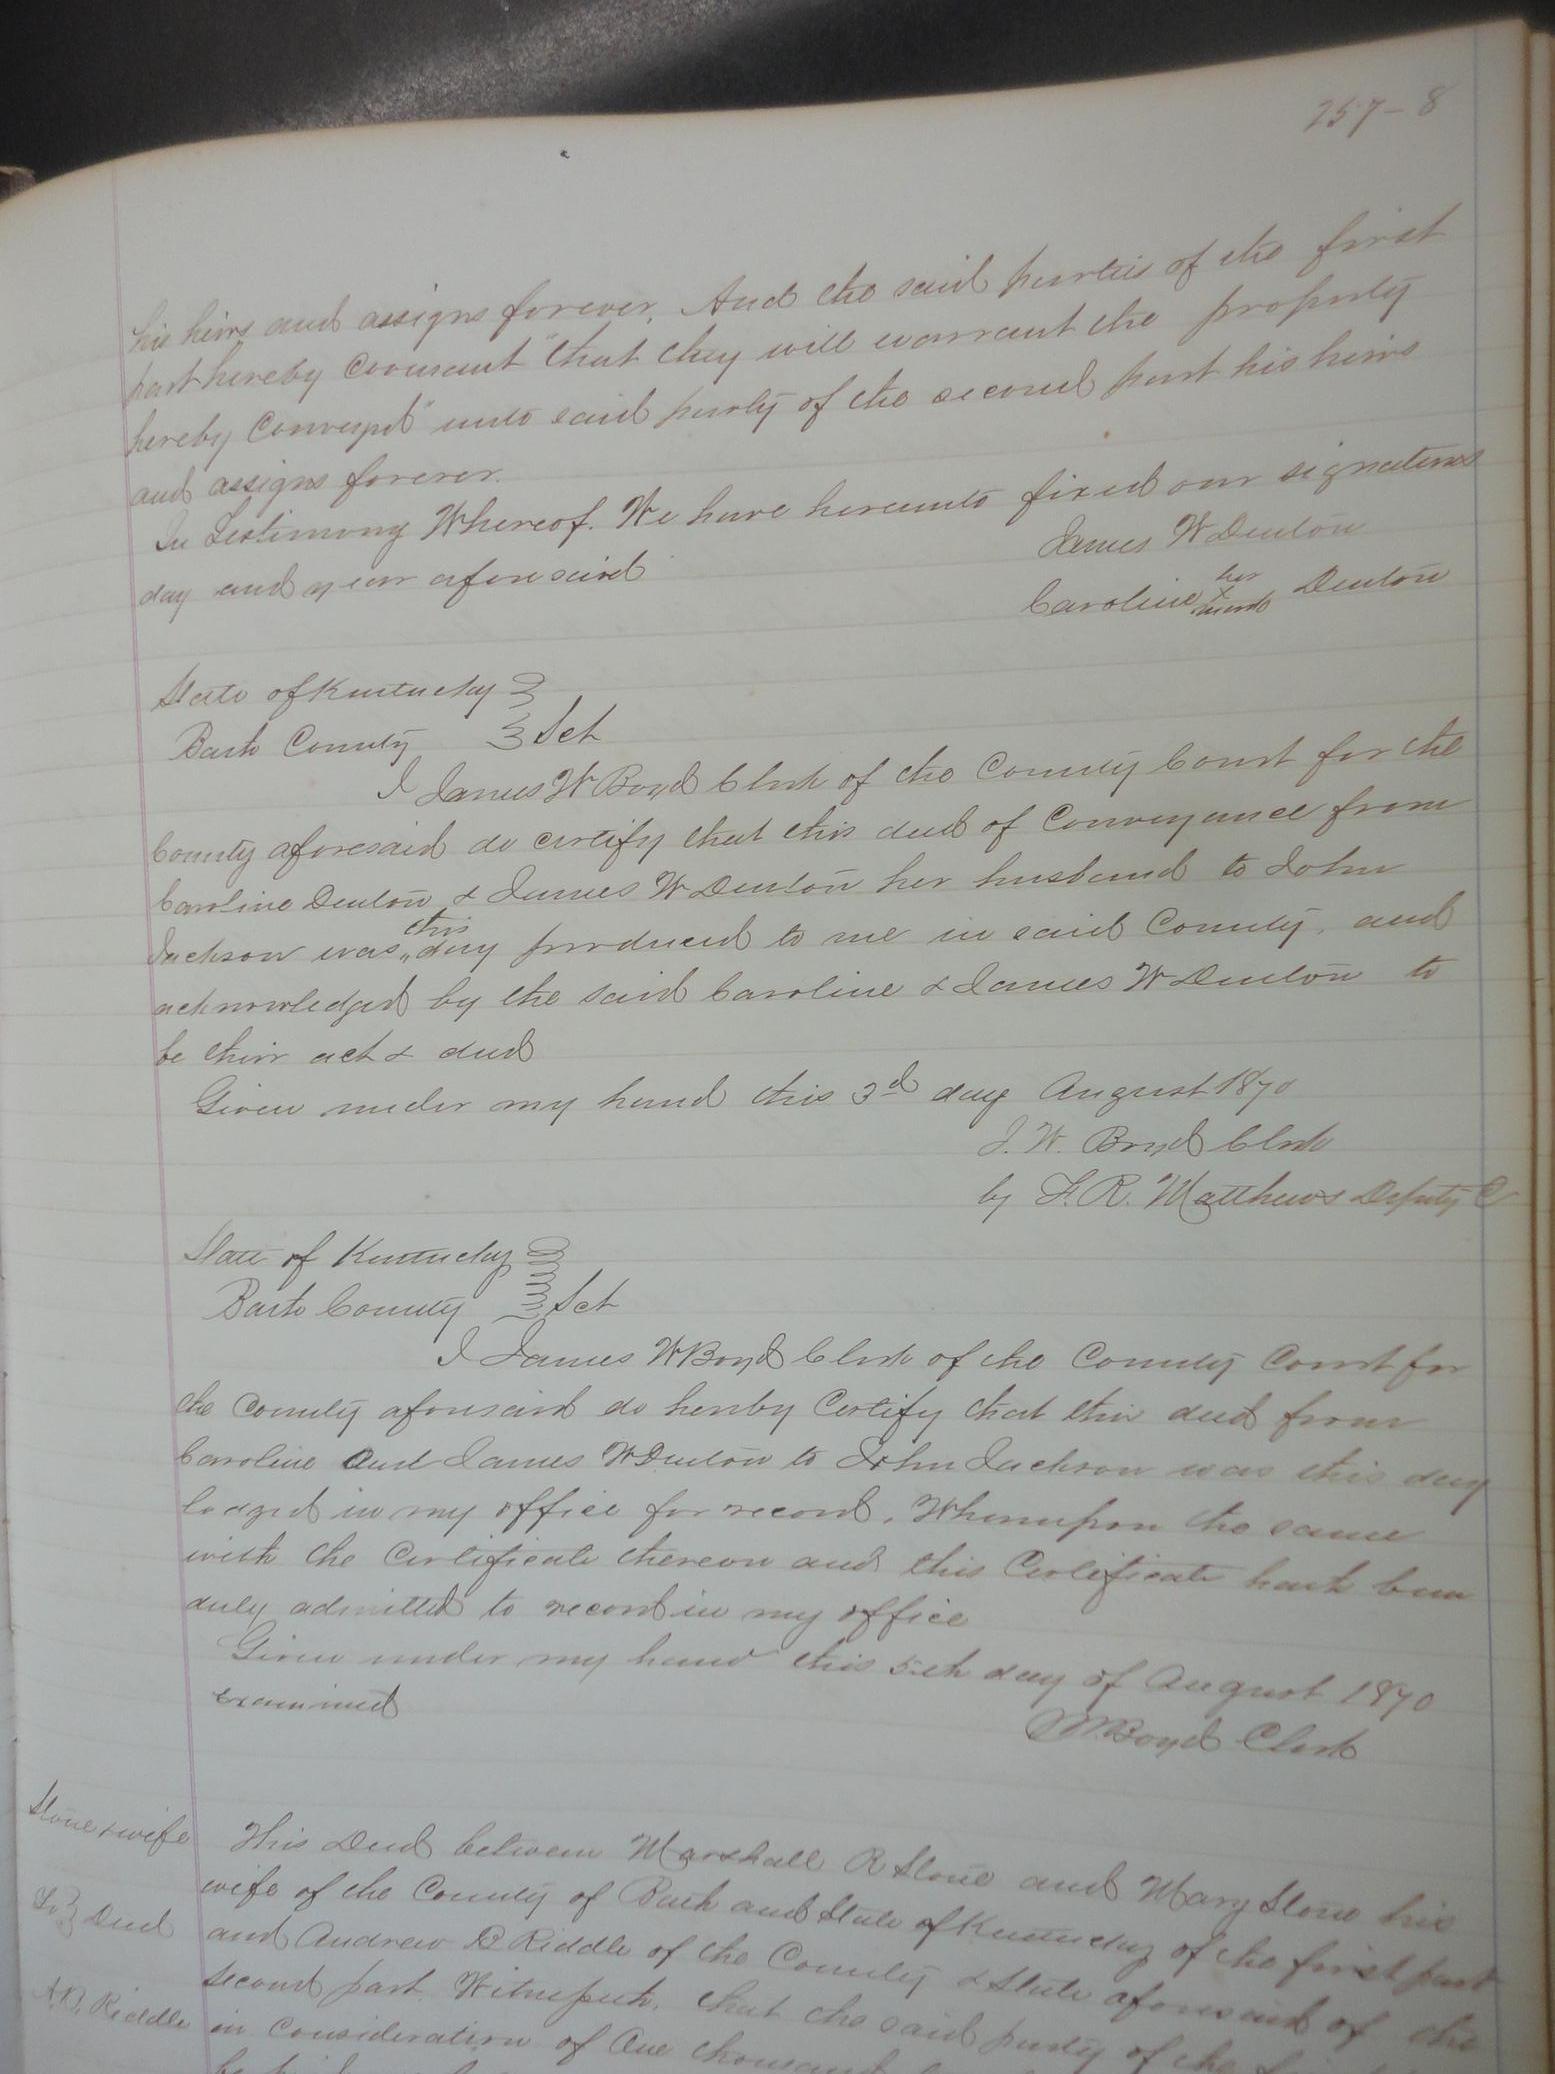 257-8
his heirs and assigns forever. And the said parties of the first
part hereby Covenant "that they will warrant the property
hereby Conveyed" unto said party of the second part his heirs
and assigns forever.
In Testimony Whereof. We have hereunto fixed our signatures
day and year aforesaid
James W Denton
her
Caroline x Denton
mark
State of Kentucky
Bath County Sct
I James W Boyd Clerk of the County Court for the
County aforesaid do certify that this deed of Conveyance from
Caroline Denton & James W Denton her husband to John
this
Jackson was day produced to me in said County, and
acknowledged by the said Caroline & James W Denton to
be their act & deed
Given under my hand this 3d day August 1870
J. W. Boyd Clerk
by F. R. Matthews Deputy C
State of Kentucky
Bath County Sct
I James W Boyd Clerk of the County Court for
the County aforesaid do hereby Certify that this deed from
Caroline and James W Denton to John Jackson was this day
lodged in my office for record. Whereupon the same
with the Certificate thereon and this Certificate hath been
duly admitted to record in my office
Given under my hand this 5th day of August 1870
Examined
JW Boyd Clerk
Stone & wife
To Deed
A.B. Riddle
This Deed between Marshall R Stone and Mary Stone his
wife of the County of Bath and State of Kentucky of the first part
and Andrew B Riddle of the County & State aforesaid of the
second part. Witnesseth. that the said party of the
in Consideration of One thousand